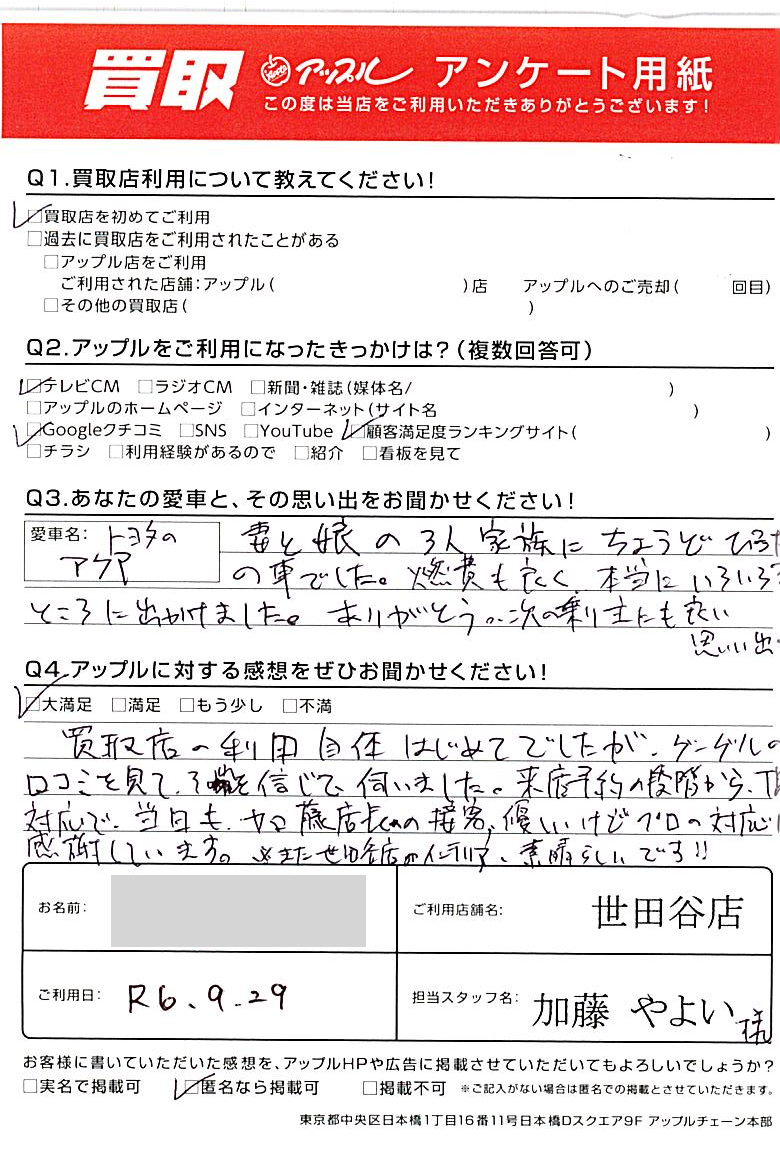 買取 アップル アンケート用紙
この度は当店をご利用いただきありがとうございます!
Q1.買取店利用について教えてください!
□買取店を初めてご利用
□過去に買取店をご利用されたことがある
□アップル店をご利用
ご利用された店舗:アップル( )店 アップルへのご売却( 回目)
□その他の買取店( )
Q2.アップルをご利用になったきっかけは?(複数回答可)
□テレビCM □ラジオCM □新聞・雑誌(媒体名/ )
□アップルのホームページ □インターネット(サイト名 )
□Googleクチコミ □SNS □YouTube □顧客満足度ランキングサイト( )
□チラシ □利用経験があるので □紹介 □看板を見て
Q3.あなたの愛車と、その思い出をお聞かせください!
愛車名: トヨタの 妻と娘の3人家族にちょうど
アクア の車でした。燃費も良く、本当にいろいろ
ところに出かけました。ありがとう。次の乗り主にも良い
思い出
Q4.アップルに対する感想をぜひお聞かせください!
□大満足 □満足 □もう少し □不満
買取店の利用自体はじめてでしたが、グーグルの
口コミを見て、を信じて、伺いました。来店予約の段階から、
対応で、当日も、加藤店長の接客、優しいけどプロの対応に
感謝しています。※また世田谷店のインテリア、素晴らしいです!!
お名前: ご利用店舗名: 世田谷店
ご利用日: R6.9.29 担当スタッフ名: 加藤 やよい様
お客様に書いていただいた感想を、アップルHPや広告に掲載させていただいてもよろしいでしょうか?
□実名で掲載可 □匿名なら掲載可 □掲載不可 ※ご記入がない場合は匿名での掲載とさせていただきます。
東京都中央区日本橋1丁目16番11号日本橋Dスクエア9F アップルチェーン本部